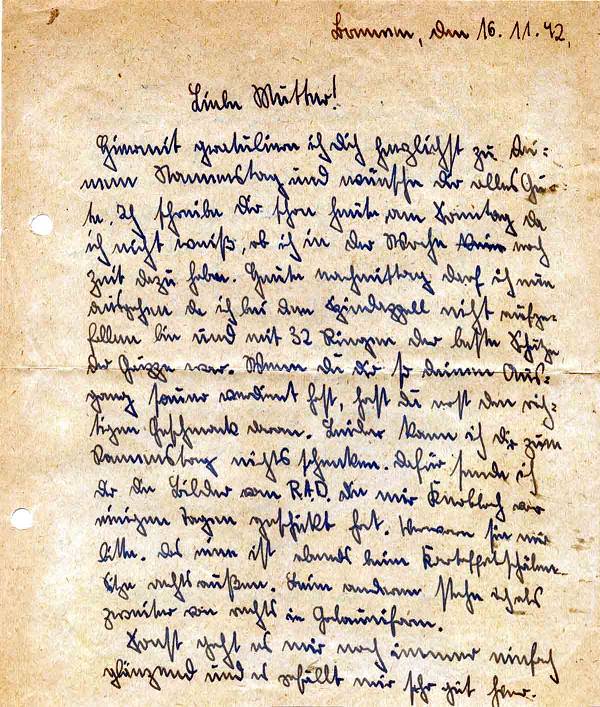 Bremen, den 16.11.42.
Liebe Mutter!
Hiermit gratuliere ich Dich herzlichst zu Dei-
nem Namenstag und wünsche dir alles Gu-
te. Ich schreibe Dir schon heute am Sonntag da
ich nicht weiß, ob ich in der Woche noch
Zeit dazu habe. Heute nachmittag darf ich nun
ausgehen da ich bei dem Spindappell nicht aufge-
fallen bin und mit 32 Ringen der beste Schütze
der Gruppe war. Wenn du dir so deinen Aus-
gang sauer verdient hast, hast du erst den rich-
tigen Geschmack daran. Leider kann ich dir zum
Namenstag nichts schenken. Dafür sende ich
dir die Bilder vom R.A.D. die mir Knobloch vor
einigen Tagen geschickt hat. Verwahre sie mir
bitte. Das eine ist abends beim Kartoffelschälen.
Sitze rechts außen. Beim anderen stehe ich als
zweiter von rechts in Uniform.
Sonst geht es mir noch immer einfach
glänzend und es gefällt mir sehr gut hier.